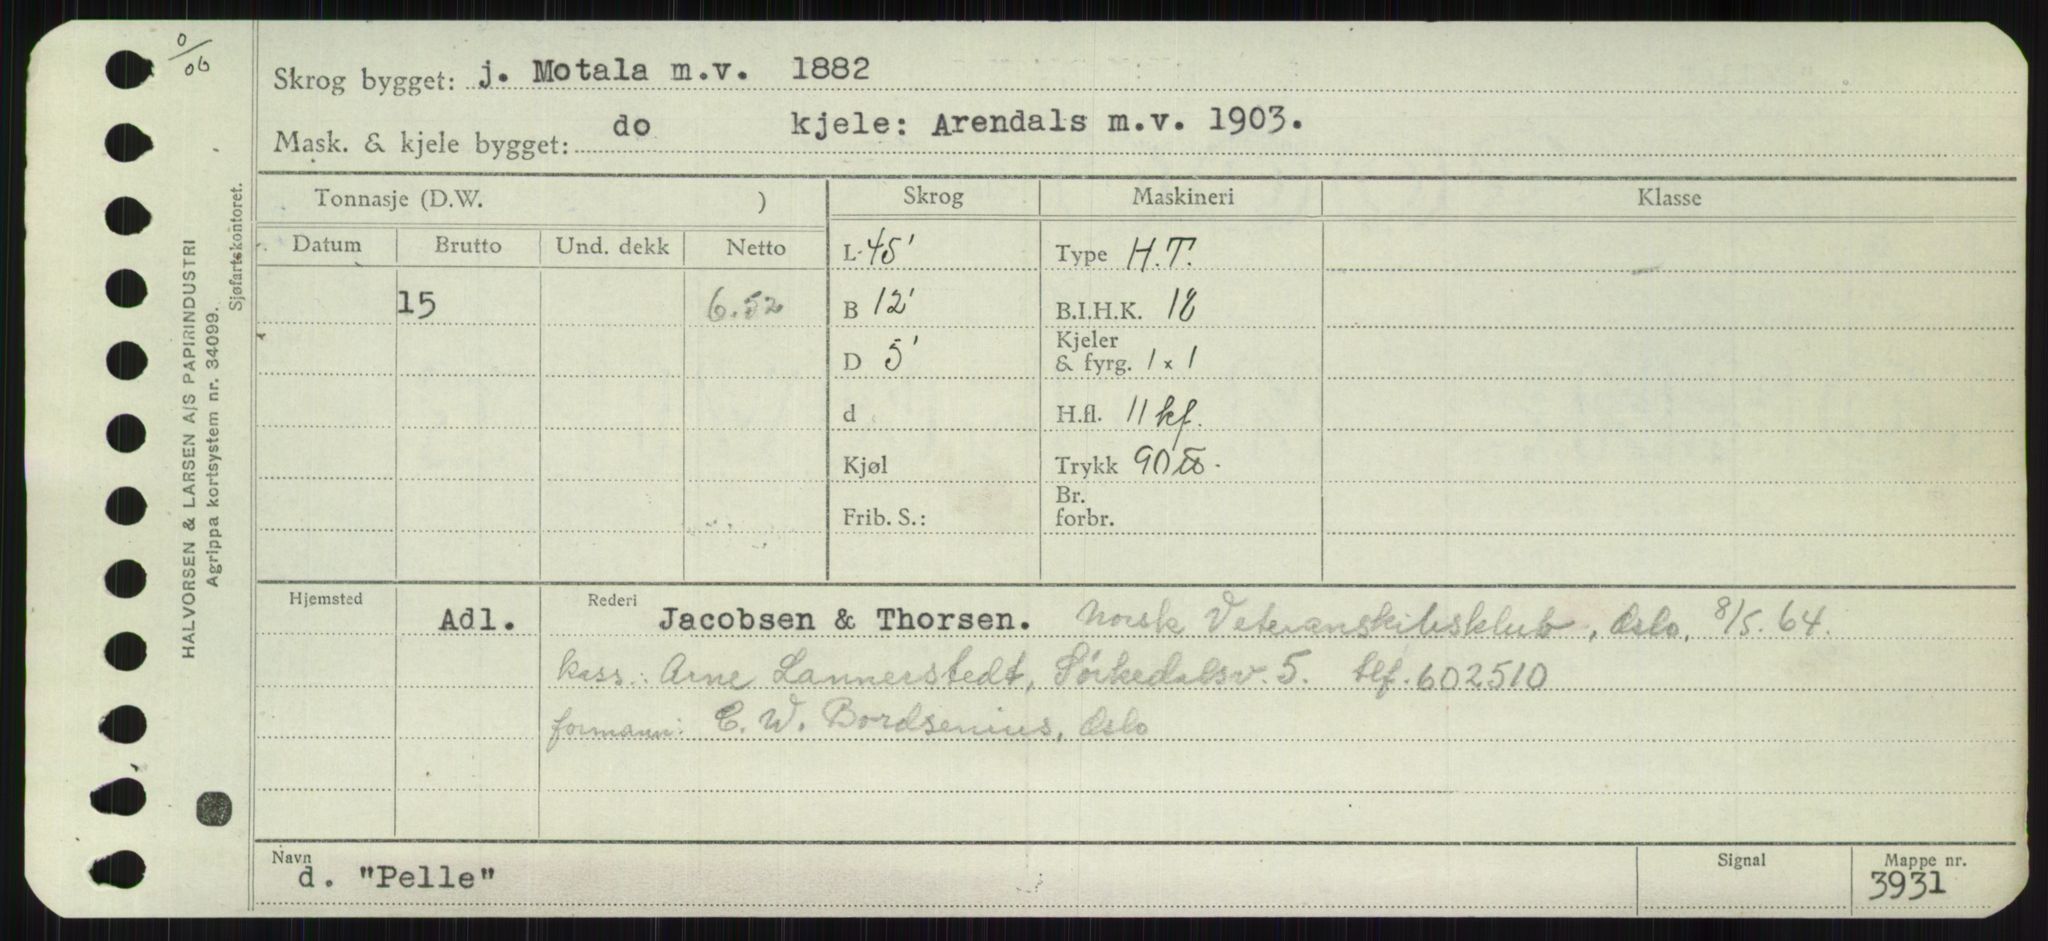 0/06
Skrog bygget: j. Motala m.v. 1882
Mask. & kjele bygget: do kjele: Arendals m.v. 1903.
Tonnasje (D.W. ) Skrog Maskineri Klasse
Datum Brutto Und. dekk Netto L. 45' Type H.T.
15 6.52 B 12' B.I.H.K. 18
D 5' Kjeler & fyrg. 1 x 1
d H.fl. 11 kf.
Kjøl Trykk 90 ℔.
Frib. S.: Br. forbr.
Hjemsted Adl. Rederi Jacobsen & Thorsen. Norsk Veteranskibsklub, Oslo, 8/5. 64.
kass.: Arne Lannerstedt, Sörkedalsv. 5. tlf. 602510
formann: C. W. Bordsenius, Oslo
Navn d. "Pelle" Signal Mappe nr. 3931
HALVORSEN & LARSEN A/S PAPIRINDUSTRI
Agrippa kortsystem nr. 34099.
Sjøfartskontoret.